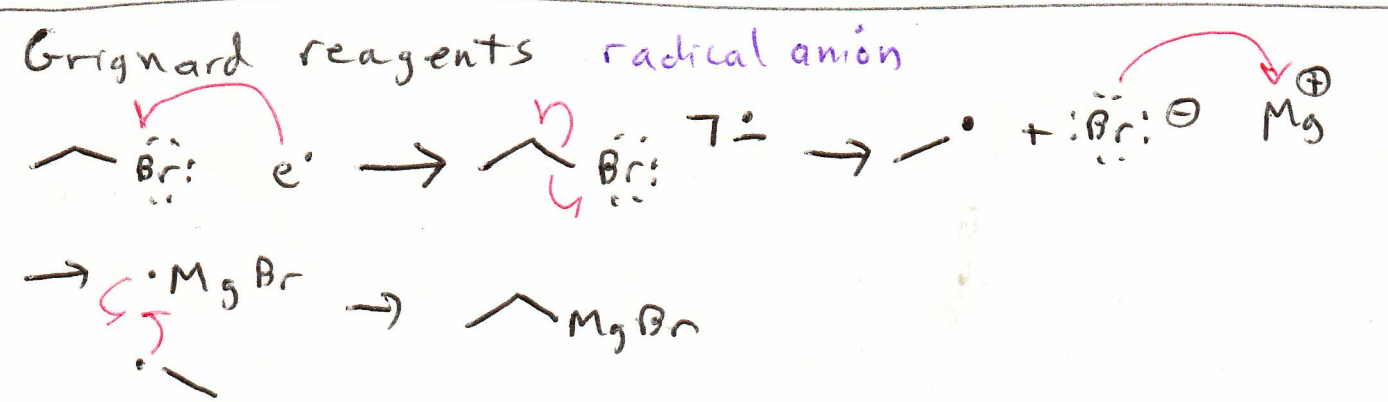 Grignard reagents radical anion
Br: e• → Br: ⁊•− → • + :Br: ⊖ Mg ⊕
→ •MgBr → MgBr